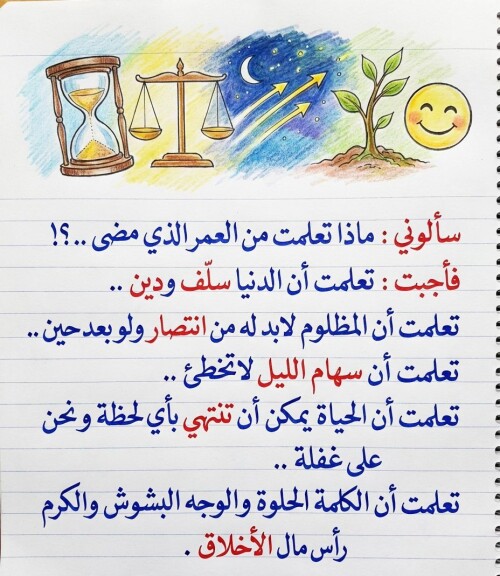 سألوني : ماذا تعلمت من العمر الذي مضى ..؟!
فأجبت : تعلمت أن الدنيا سلّف ودين ..
تعلمت أن المظلوم لابد له من انتصار ولو بعد حين ..
تعلمت أن سهام الليل لا تخطئ ..
تعلمت أن الحياة يمكن أن تنتهي بأي لحظة ونحن
على غفلة ..
تعلمت أن الكلمة الحلوة والوجه البشوش والكرم
رأس مال الأخلاق .